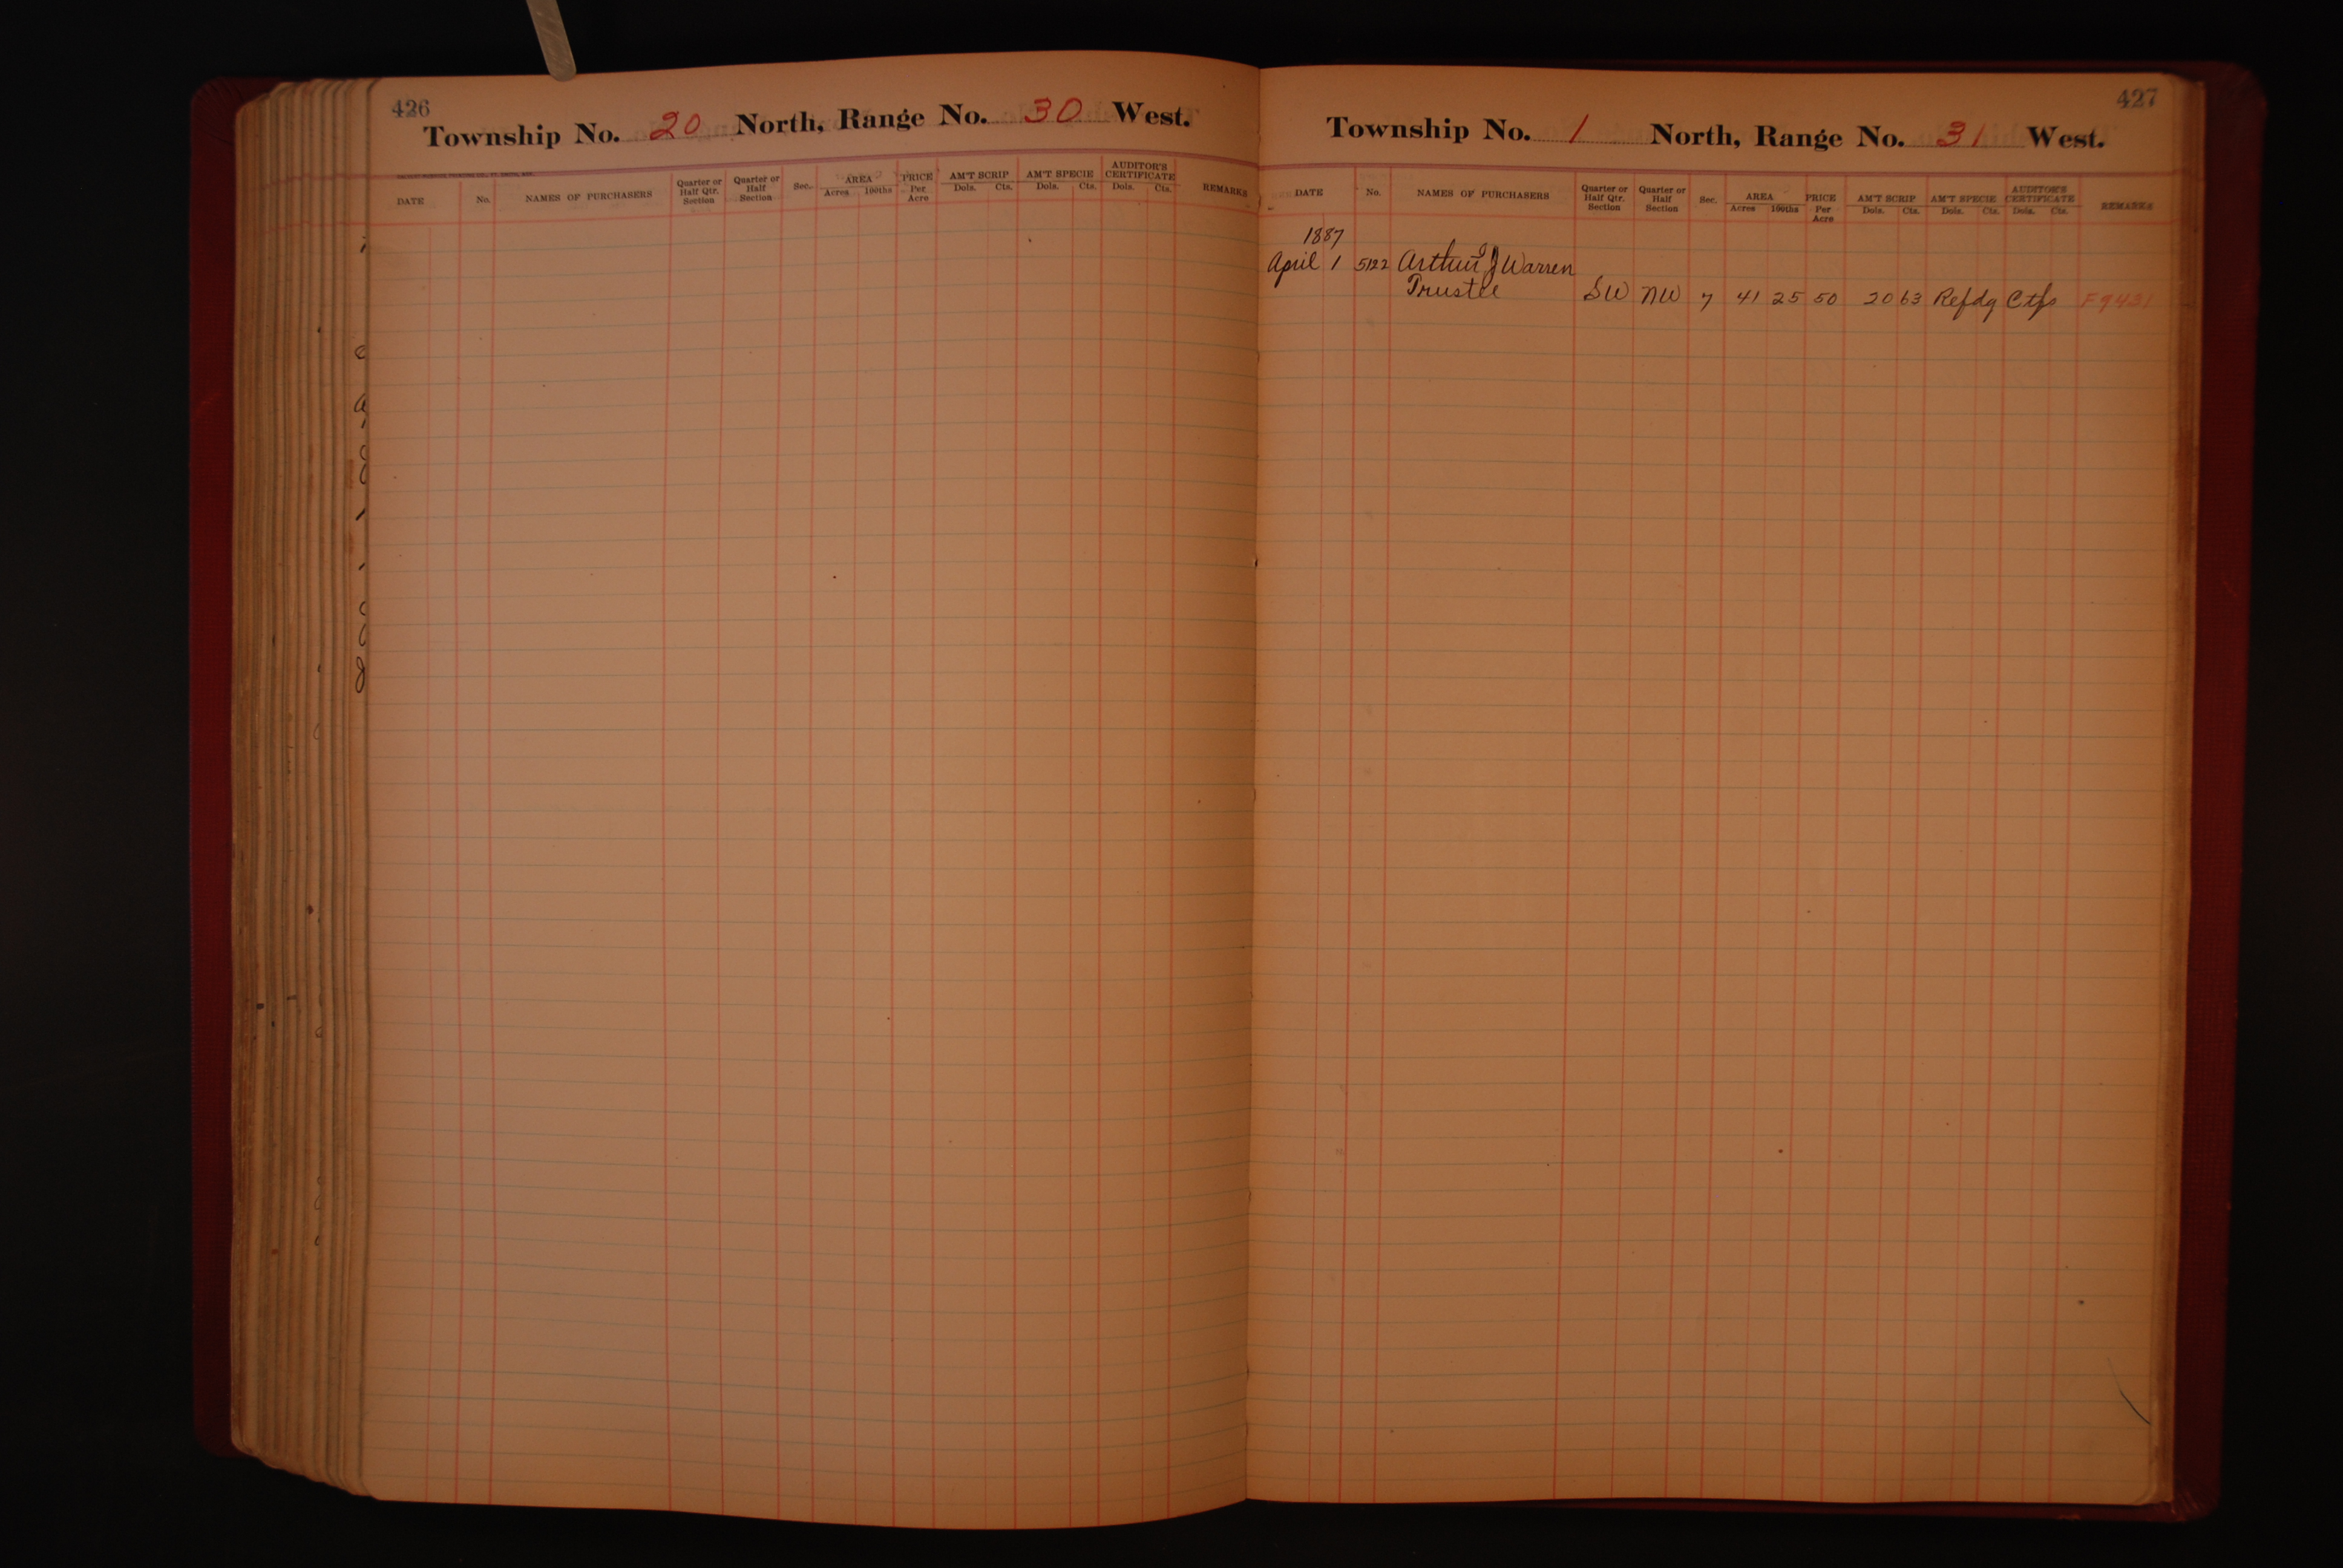 426
Township No. 20 North, Range No. 30 West.
DATE No. NAMES OF PURCHASERS Quarter or Half Qtr. Section Quarter or Half Section Sec. AREA Acres 100ths PRICE Per Acre AM'T SCRIP Dols. Cts. AM'T SPECIE Dols. Cts. AUDITOR'S CERTIFICATE Dols. Cts. REMARKS
427
Township No. 1 North, Range No. 31 West.
DATE No. NAMES OF PURCHASERS Quarter or Half Qtr. Section Quarter or Half Section Sec. AREA Acres 100ths PRICE Per Acre AM'T SCRIP Dols. Cts. AM'T SPECIE Dols. Cts. AUDITOR'S CERTIFICATE Dols. Cts. REMARKS
1887
April 1 5122 Arthur J Warren
Trustee SW NW 7 41 25 50 20 63 Refdg Ctfs F9431